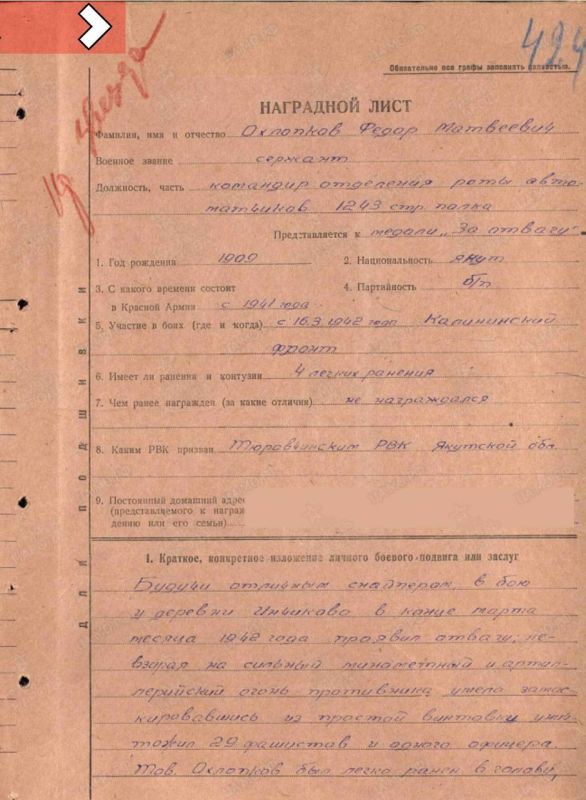 424
Обязательно все графы заполнять полностью.
Кр звезда
НАГРАДНОЙ ЛИСТ
Фамилия, имя и отчество Охлопков Федор Матвеевич
Военное звание сержант
Должность, часть командир отделения роты авто-
матчиков 1243 стр. полка
Представляется к медали „За отвагу“
1. Год рождения 1909 2. Национальность якут
3. С какого времени состоит 4. Партийность б/п
в Красной Армии с 1941 года
5. Участие в боях (где и когда) с 16.3 1942 года Калининский
фронт
6. Имеет ли ранения и контузии 4 легких ранения
7. Чем ранее награжден (за какие отличия) не награждался
8. Каким РВК призван РВК Якутской обл.
9. Постоянный домашний адрес
(представляемого к награж
дению или его семьи)
ДЛЯ ПОДШИВКИ
I. Краткое, конкретное изложение личного боевого подвига или заслуг
Будучи отличным снайпером, в бою
у деревни Инчиково в конце марта
месяца 1942 года проявил отвагу; не-
взирая на сильный минометный и артил-
лерийский огонь противника умело замас-
кировавшись из простой винтовки унич-
тожил 29 фашистов и одного офицера.
Тов. Охлопков был легко ранен в голову,